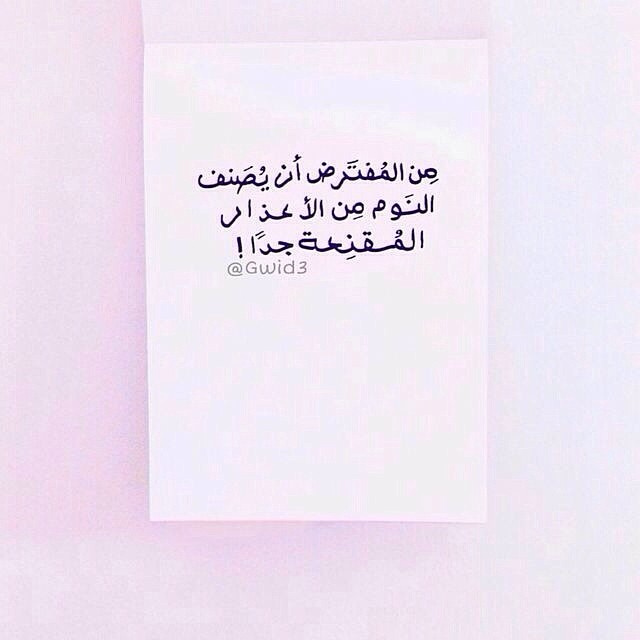 مِن المُفتَرض أن يُصَنف
النَوم مِن الأعذار
المُقنِعة جدًا !
@Gwid3